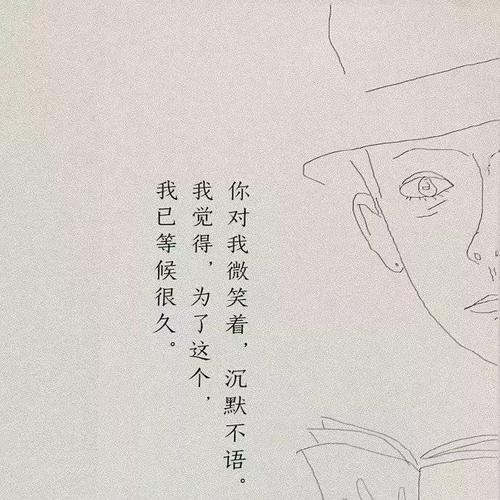 你对我微笑着，沉默不语。
我觉得，为了这个，
我已等候很久。